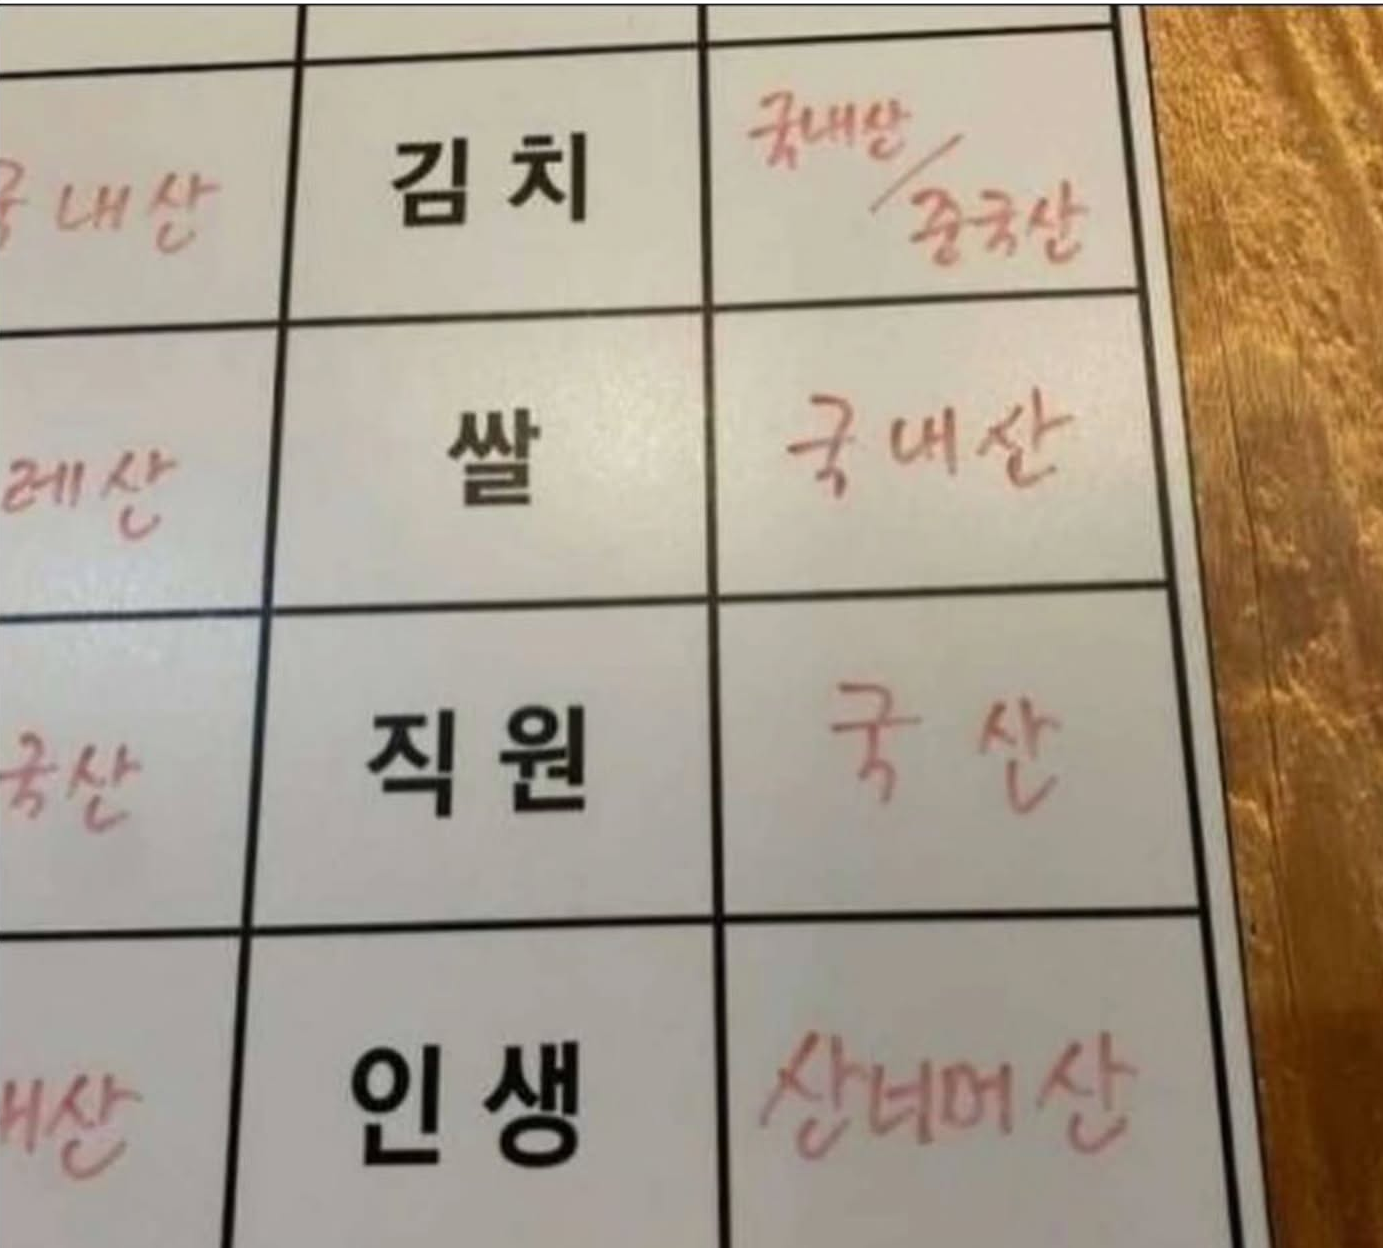 국내산 김치 국내산/
중국산
레산 쌀 국내산
국산 직원 국산
내산 인생 산너머산